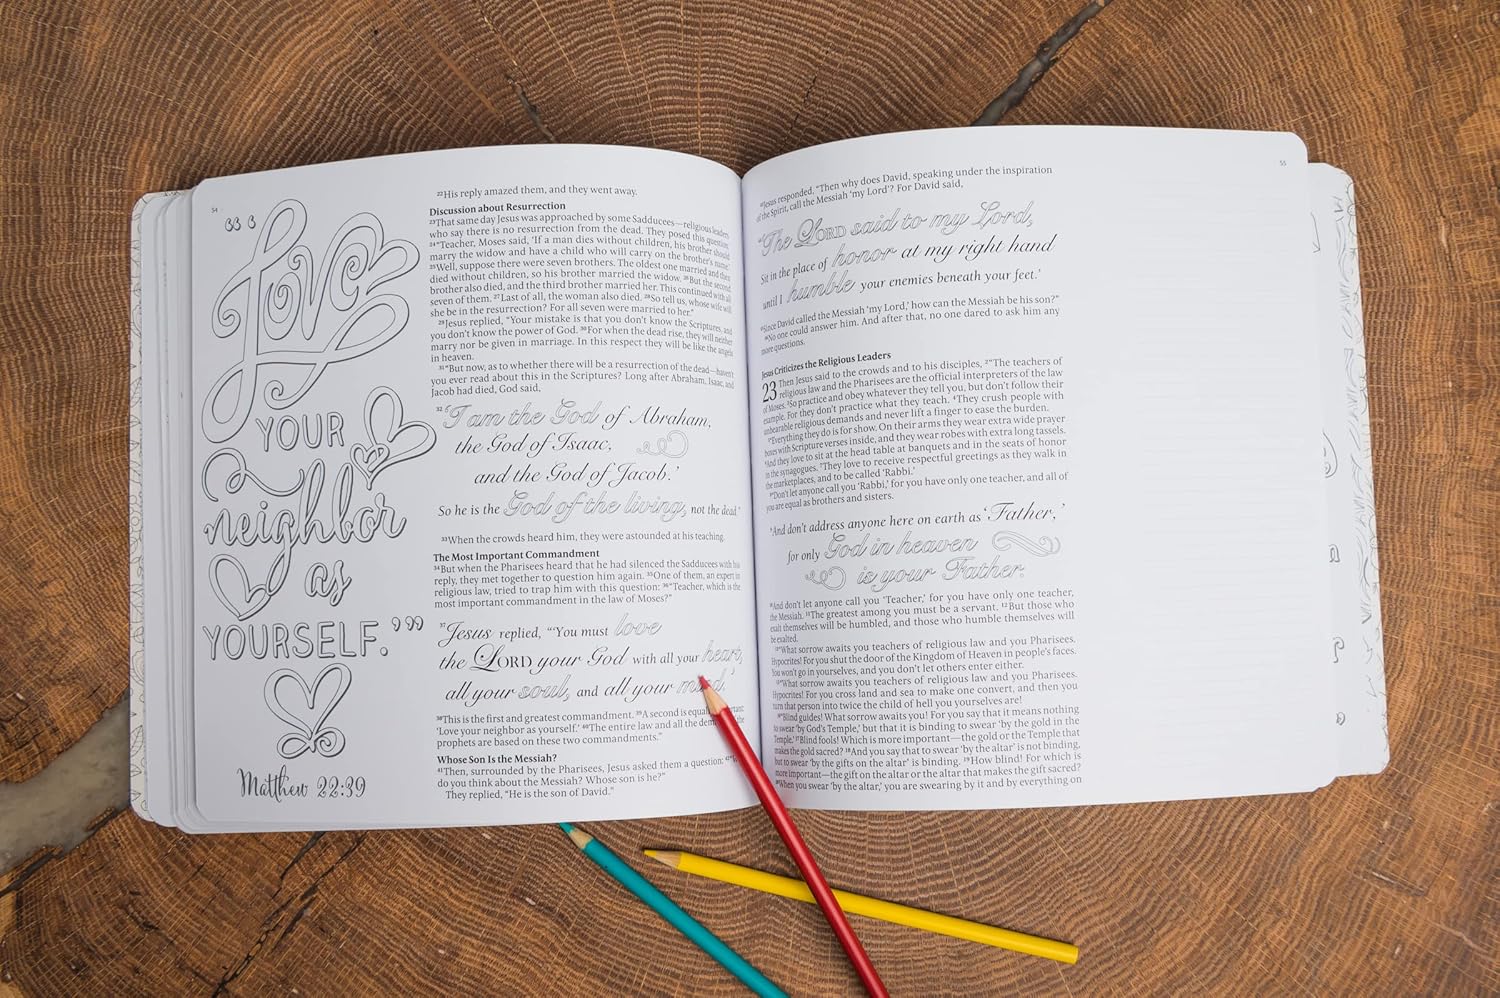 54
“Love
YOUR
neighbor
as
YOURSELF.”
Matthew 22:39
22His reply amazed them, and they went away.
Discussion about Resurrection
23That same day Jesus was approached by some Sadducees—religious leaders
who say there is no resurrection from the dead. They posed this question:
24“Teacher, Moses said, ‘If a man dies without children, his brother should
marry the widow and have a child who will carry on the brother’s name.’
25Well, suppose there were seven brothers. The oldest one married and then
died without children, so his brother married the widow. 26But the second
brother also died, and the third brother married her. This continued with all
seven of them. 27Last of all, the woman also died. 28So tell us, whose wife will
she be in the resurrection? For all seven were married to her.”
29Jesus replied, “Your mistake is that you don’t know the Scriptures, and
you don’t know the power of God. 30For when the dead rise, they will neither
marry nor be given in marriage. In this respect they will be like the angels
in heaven.
31“But now, as to whether there will be a resurrection of the dead—haven’t
you ever read about this in the Scriptures? Long after Abraham, Isaac, and
Jacob had died, God said,
32‘I am the God of Abraham,
the God of Isaac,
and the God of Jacob.’
So he is the God of the living, not the dead.”
33When the crowds heard him, they were astounded at his teaching.
The Most Important Commandment
34But when the Pharisees heard that he had silenced the Sadducees with his
reply, they met together to question him again. 35One of them, an expert in
religious law, tried to trap him with this question: 36“Teacher, which is the
most important commandment in the law of Moses?”
37Jesus replied, “‘You must love
the LORD your God with all your heart,
all your soul, and all your mind.’
38This is the first and greatest commandment. 39A second is equally important
‘Love your neighbor as yourself.’ 40The entire law and all the the
prophets are based on these two commandments.”
Whose Son Is the Messiah?
41Then, surrounded by the Pharisees, Jesus asked them a question: 42“
do you think about the Messiah? Whose son is he?”
They replied, “He is the son of David.”
55
43Jesus responded, “Then why does David, speaking under the inspiration
of the Spirit, call the Messiah ‘my Lord’? For David said,
44‘The LORD said to my Lord,
Sit in the place of honor at my right hand
until I humble your enemies beneath your feet.’
45Since David called the Messiah ‘my Lord,’ how can the Messiah be his son?”
46No one could answer him. And after that, no one dared to ask him any
more questions.
Jesus Criticizes the Religious Leaders
23 Then Jesus said to the crowds and to his disciples, 2“The teachers of
religious law and the Pharisees are the official interpreters of the law
of Moses. 3So practice and obey whatever they tell you, but don’t follow their
example. For they don’t practice what they teach. 4They crush people with
unbearable religious demands and never lift a finger to ease the burden.
5“Everything they do is for show. On their arms they wear extra wide prayer
boxes with Scripture verses inside, and they wear robes with extra long tassels.
6And they love to sit at the head table at banquets and in the seats of honor
in the synagogues. 7They love to receive respectful greetings as they walk in
the marketplaces, and to be called ‘Rabbi.’
8“Don’t let anyone call you ‘Rabbi,’ for you have only one teacher, and all of
you are equal as brothers and sisters.
9And don’t address anyone here on earth as ‘Father,’
for only God in heaven
is your Father.
10And don’t let anyone call you ‘Teacher,’ for you have only one teacher,
the Messiah. 11The greatest among you must be a servant. 12But those who
exalt themselves will be humbled, and those who humble themselves will
be exalted.
13“What sorrow awaits you teachers of religious law and you Pharisees.
Hypocrites! For you shut the door of the Kingdom of Heaven in people’s faces.
You won’t go in yourselves, and you don’t let others enter either.
15“What sorrow awaits you teachers of religious law and you Pharisees.
Hypocrites! For you cross land and sea to make one convert, and then you
turn that person into twice the child of hell you yourselves are!
16“Blind guides! What sorrow awaits you! For you say that it means nothing
to swear ‘by God’s Temple,’ but that it is binding to swear ‘by the gold in the
Temple.’ 17Blind fools! Which is more important—the gold or the Temple that
makes the gold sacred? 18And you say that to swear ‘by the altar’ is not binding,
but to swear ‘by the gifts on the altar’ is binding. 19How blind! For which is
more important—the gift on the altar or the altar that makes the gift sacred?
20When you swear ‘by the altar,’ you are swearing by it and by everything on